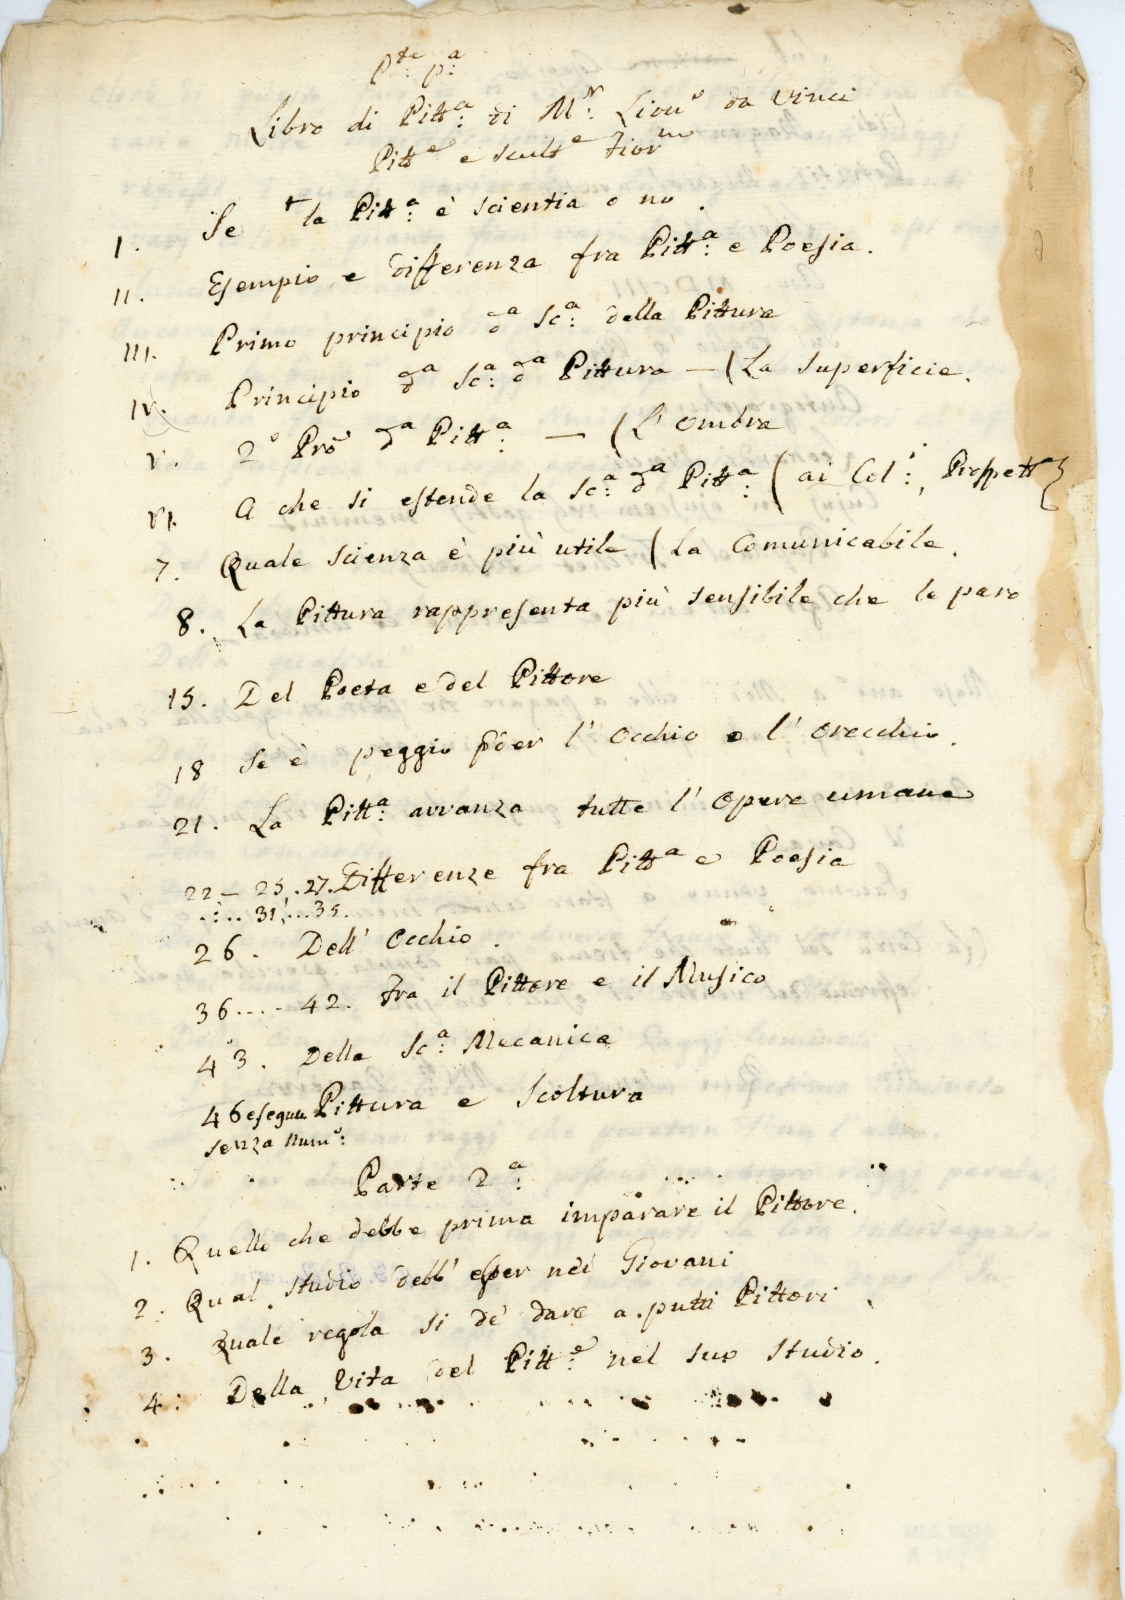 P.te p.a
Libro di Pitt.a di M.r Lion.o da Vinci
Pitt.e e scult.e Fior.no
I. Se la Pitt.a è scientia o no.
II. Esempio e differenza fra Pitt.a e Poesia.
III. Primo principio d.a Sc.a della Pittura
IV. Principio d.a Sc.a d.a Pittura — (La superficie.
V. 2.o Pro d.a Pitt.a — (L'ombra
VI. A che si estende la Sc.a d.a Pitt.a (ai Col.i, Prospett.a)
7. Quale scienza è più utile (La Comunicabile.
8. La Pittura rappresenta più sensibile che le paro
15. Del Poeta e del Pittore
18 Se è peggio per l'occhio o l'orecchio.
21. La Pitt.a avvanza tutte l'opere umane
22 — 25. 27. Differenze fra Pitt.a e Poesia
.... 31, ...35.
26. Dell'Occhio.
36.... 42. Fra il Pittore e il Musico
43. Della Sc.a Mecanica
46 e segue Pittura e Scoltura
senza num.o:
Parte 2.a
1. Quello che debbe prima imparare il Pittore.
2. Qual studio debb'esser nei Giovani
3. Quale regola si dè dare a putti Pittori
4: Della Vita del Pitt.e nel suo studio.